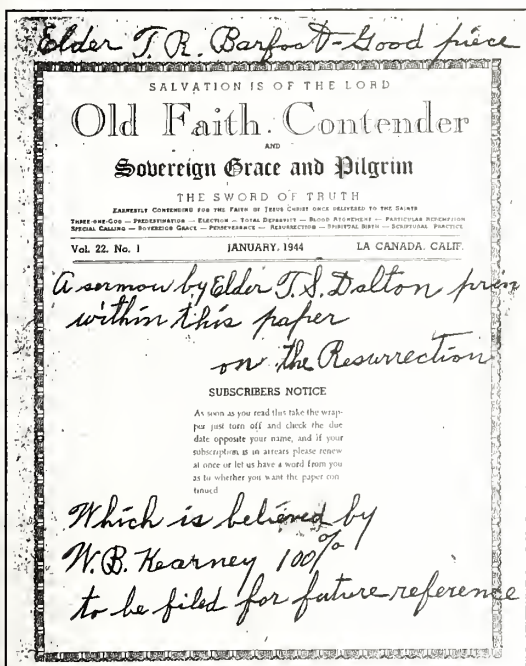 Elder T. R. Barfoot - Good piece
SALVATION IS OF THE LORD
Old Faith. Contender
AND
Sovereign Grace and Pilgrim
THE SWORD OF TRUTH
EARNESTLY CONTENDING FOR THE FAITH OF JESUS CHRIST ONCE DELIVERED TO THE SAINTS
THREE-ONE-GOD — PREDESTINATION — ELECTION — TOTAL DEPRAVITY — BLOOD ATONEMENT — PARTICULAR REDEMPTION
SPECIAL CALLING — SOVEREIGN GRACE — PERSEVERANCE — RESURRECTION — SPIRITUAL BIRTH — SCRIPTURAL PRACTICE
Vol. 22. No. 1 JANUARY, 1944 LA CANADA, CALIF.
A sermon by Elder T. S. Dalton prin
within this paper
on the Resurrection
SUBSCRIBERS NOTICE
As soon as you read this take the wrap-
per just torn off and check the due
date opposite your name, and if your
subscription is in arrears please renew
at once or let us have a word from you
as to whether you want the paper con
tinued
Which is believed by
W. B. Kearney 100%
to be filed for future reference